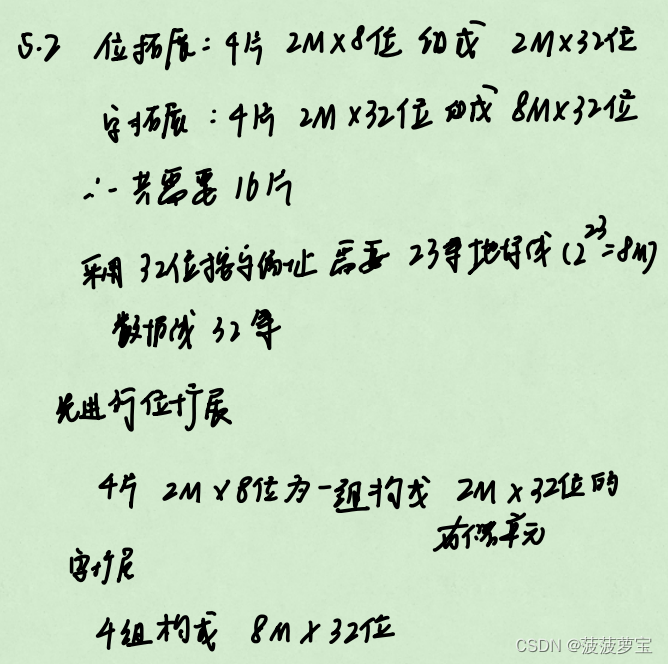 5.2 位拓展：4片 2M×8位 组成 2M×32位
字拓展：4片 2M×32位 组成 8M×32位
∴一共需要16片
采用 32位按字编址 需要 23条地址线(2^23=8M)
数据线 32条
先进行位扩展
4片 2M×8位为一组构成 2M×32位的
存储单元
字扩展
4组构成 8M×32位
CSDN @菠菠萝宝